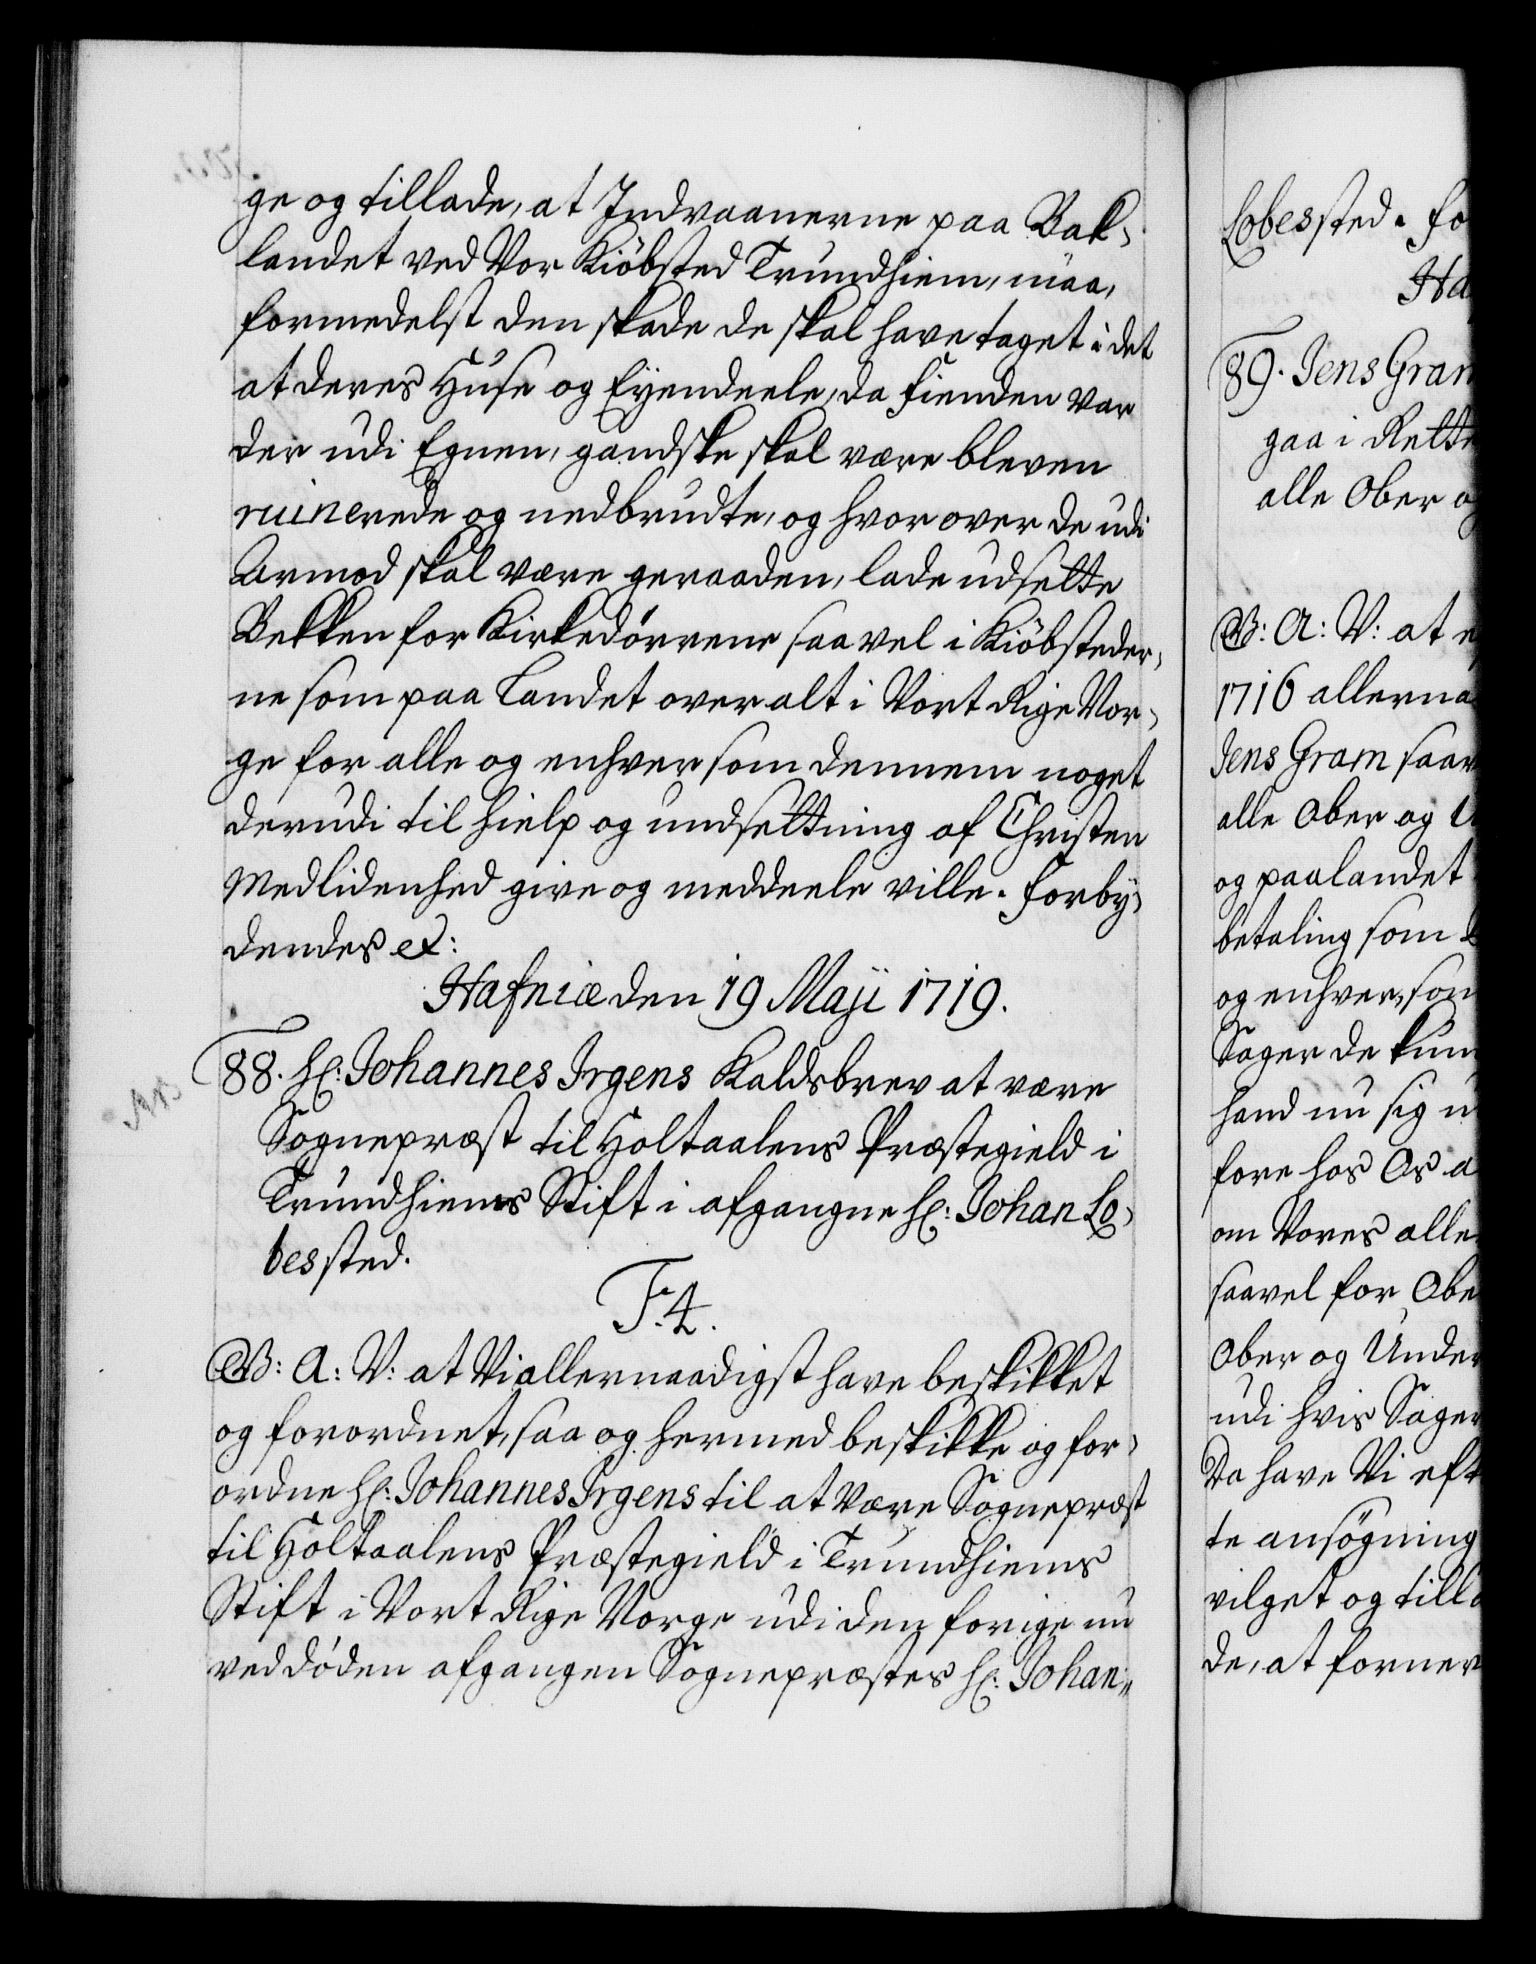 ge og tillade, at Indvaanerne paa Bak-
landet ved Vor Kiöbsted Trundhiem, maa,
formedelst den skade de skal have taget i det
at deres Huse og Eyendeele, da Fienden var
der udi Egnen, gandske skal være bleven
ruinerede og nedbrudte, og hvor over de udi
Armod skal være geraaden, lade udsette
Bekken for Kirkedörrene saa vel i Kiöbsteder-
ne som paa Landet over alt i Vort Rige Nor-
ge for alle og enhver som dennem noget
derudi til hielp og undsettning af Christen
Medlidenhed give og meddeele ville. Forby-
dendes etc:
Hafniæ den 19 Maji 1719.
88. Hr: Johannes Irgens Kaldsbrev at være
Sognepræst til Holtaalens Præstegield i
Trundhiems Stift i afgangne Hr: Johan Lo-
bessted.
F. 4.
G. A: V: at Vi allernaadigst have beskikket
og forordnet, saa og hermed beskikke og for-
ordne Hr: Johannes Irgens til at være Sognepræst
til Holtaalens Præstegield i Trundhiems
Stift i Vort Rige Norge udi den forige nu
ved döden afgangen Sognepræstes Hr: Johan
Lobessted. Fo
Ha
89. Jens Gram
gaa i Rette
alle Ober o
G: A: V: at e
1716 allerna
Jens Gram saav
alle Ober og U
og paa landet
betaling som
og enhver, som
Sager de kun
hand nu sig u
fore hos Os a
om Vores alle
saavel for Obe
Ober og Under
udi hvis Sager
Da have Vi eft
te ansögning
vilget og tilla
de, at forner